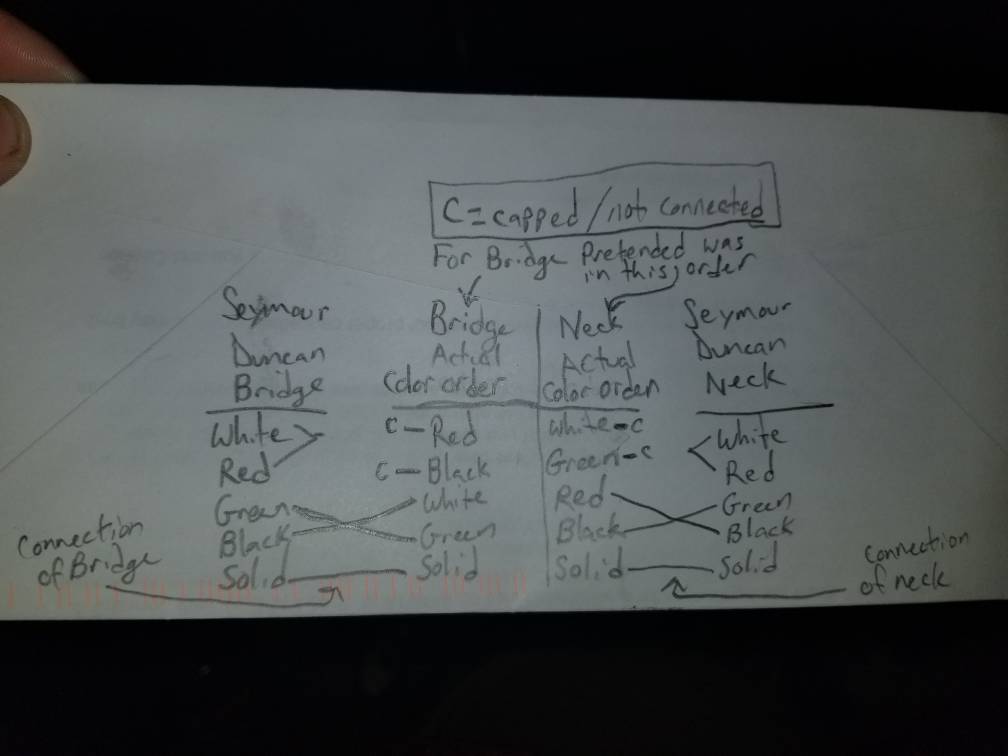 C = capped / not connected
For Bridge Pretended was
in this order
Seymour
Duncan
Bridge
White
Red
Green
Black
Solid
Bridge
Actual
Color order
C - Red
C - Black
White
Green
Solid
Neck
Actual
Color Order
White - C
Green - C
Red
Black
Solid
Seymour
Duncan
Neck
White
Red
Green
Black
Solid
Connection
of Bridge
Connection
of neck